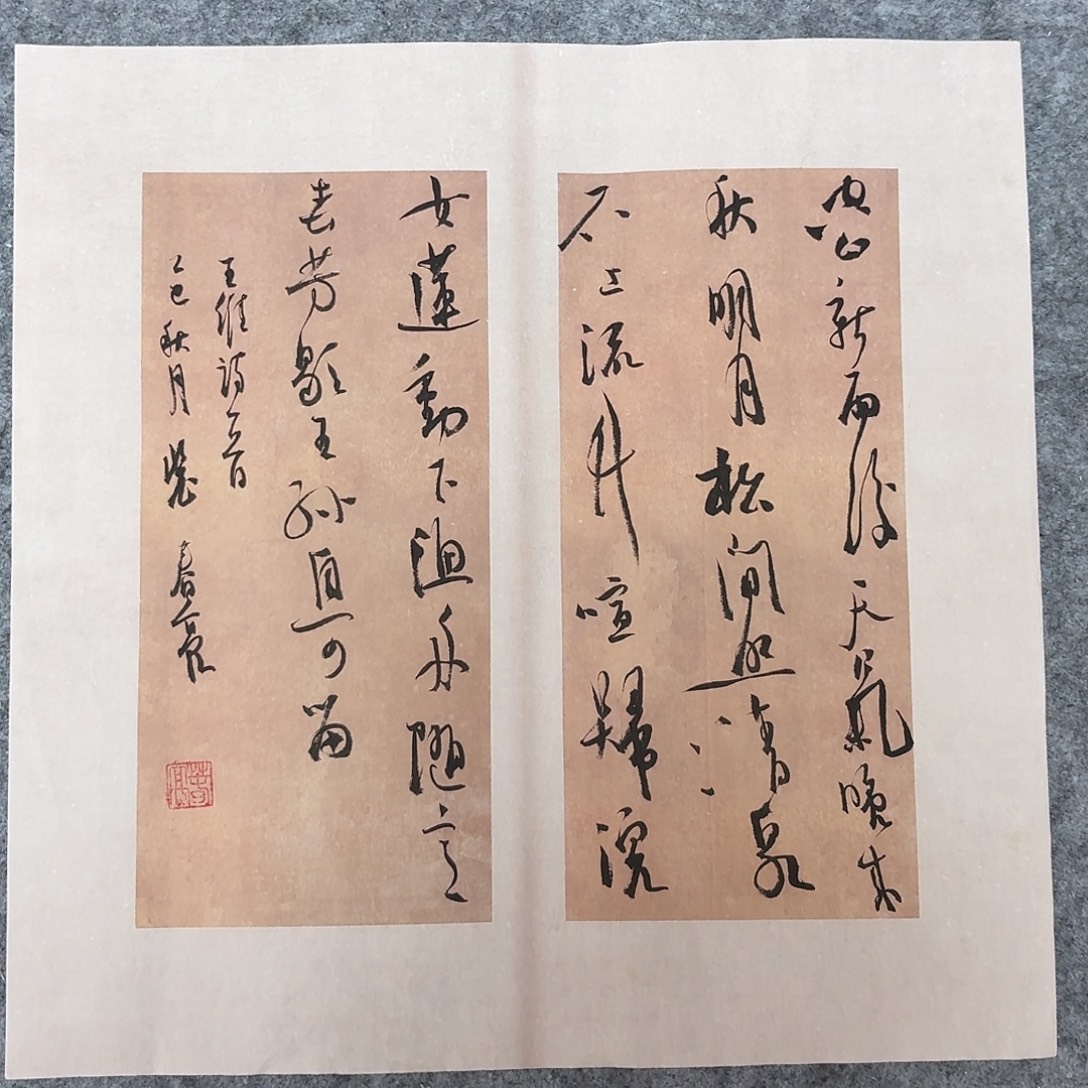 空山新雨後天氣晚來
秋明月松間照清泉
石上流竹喧歸浣
女蓮動下漁舟隨意
春芳歇王孫自可留
王維詩一首
乙巳秋月